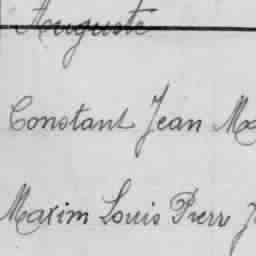 Auguste
Constant Jean Ma
Maxim Louis Pierr J